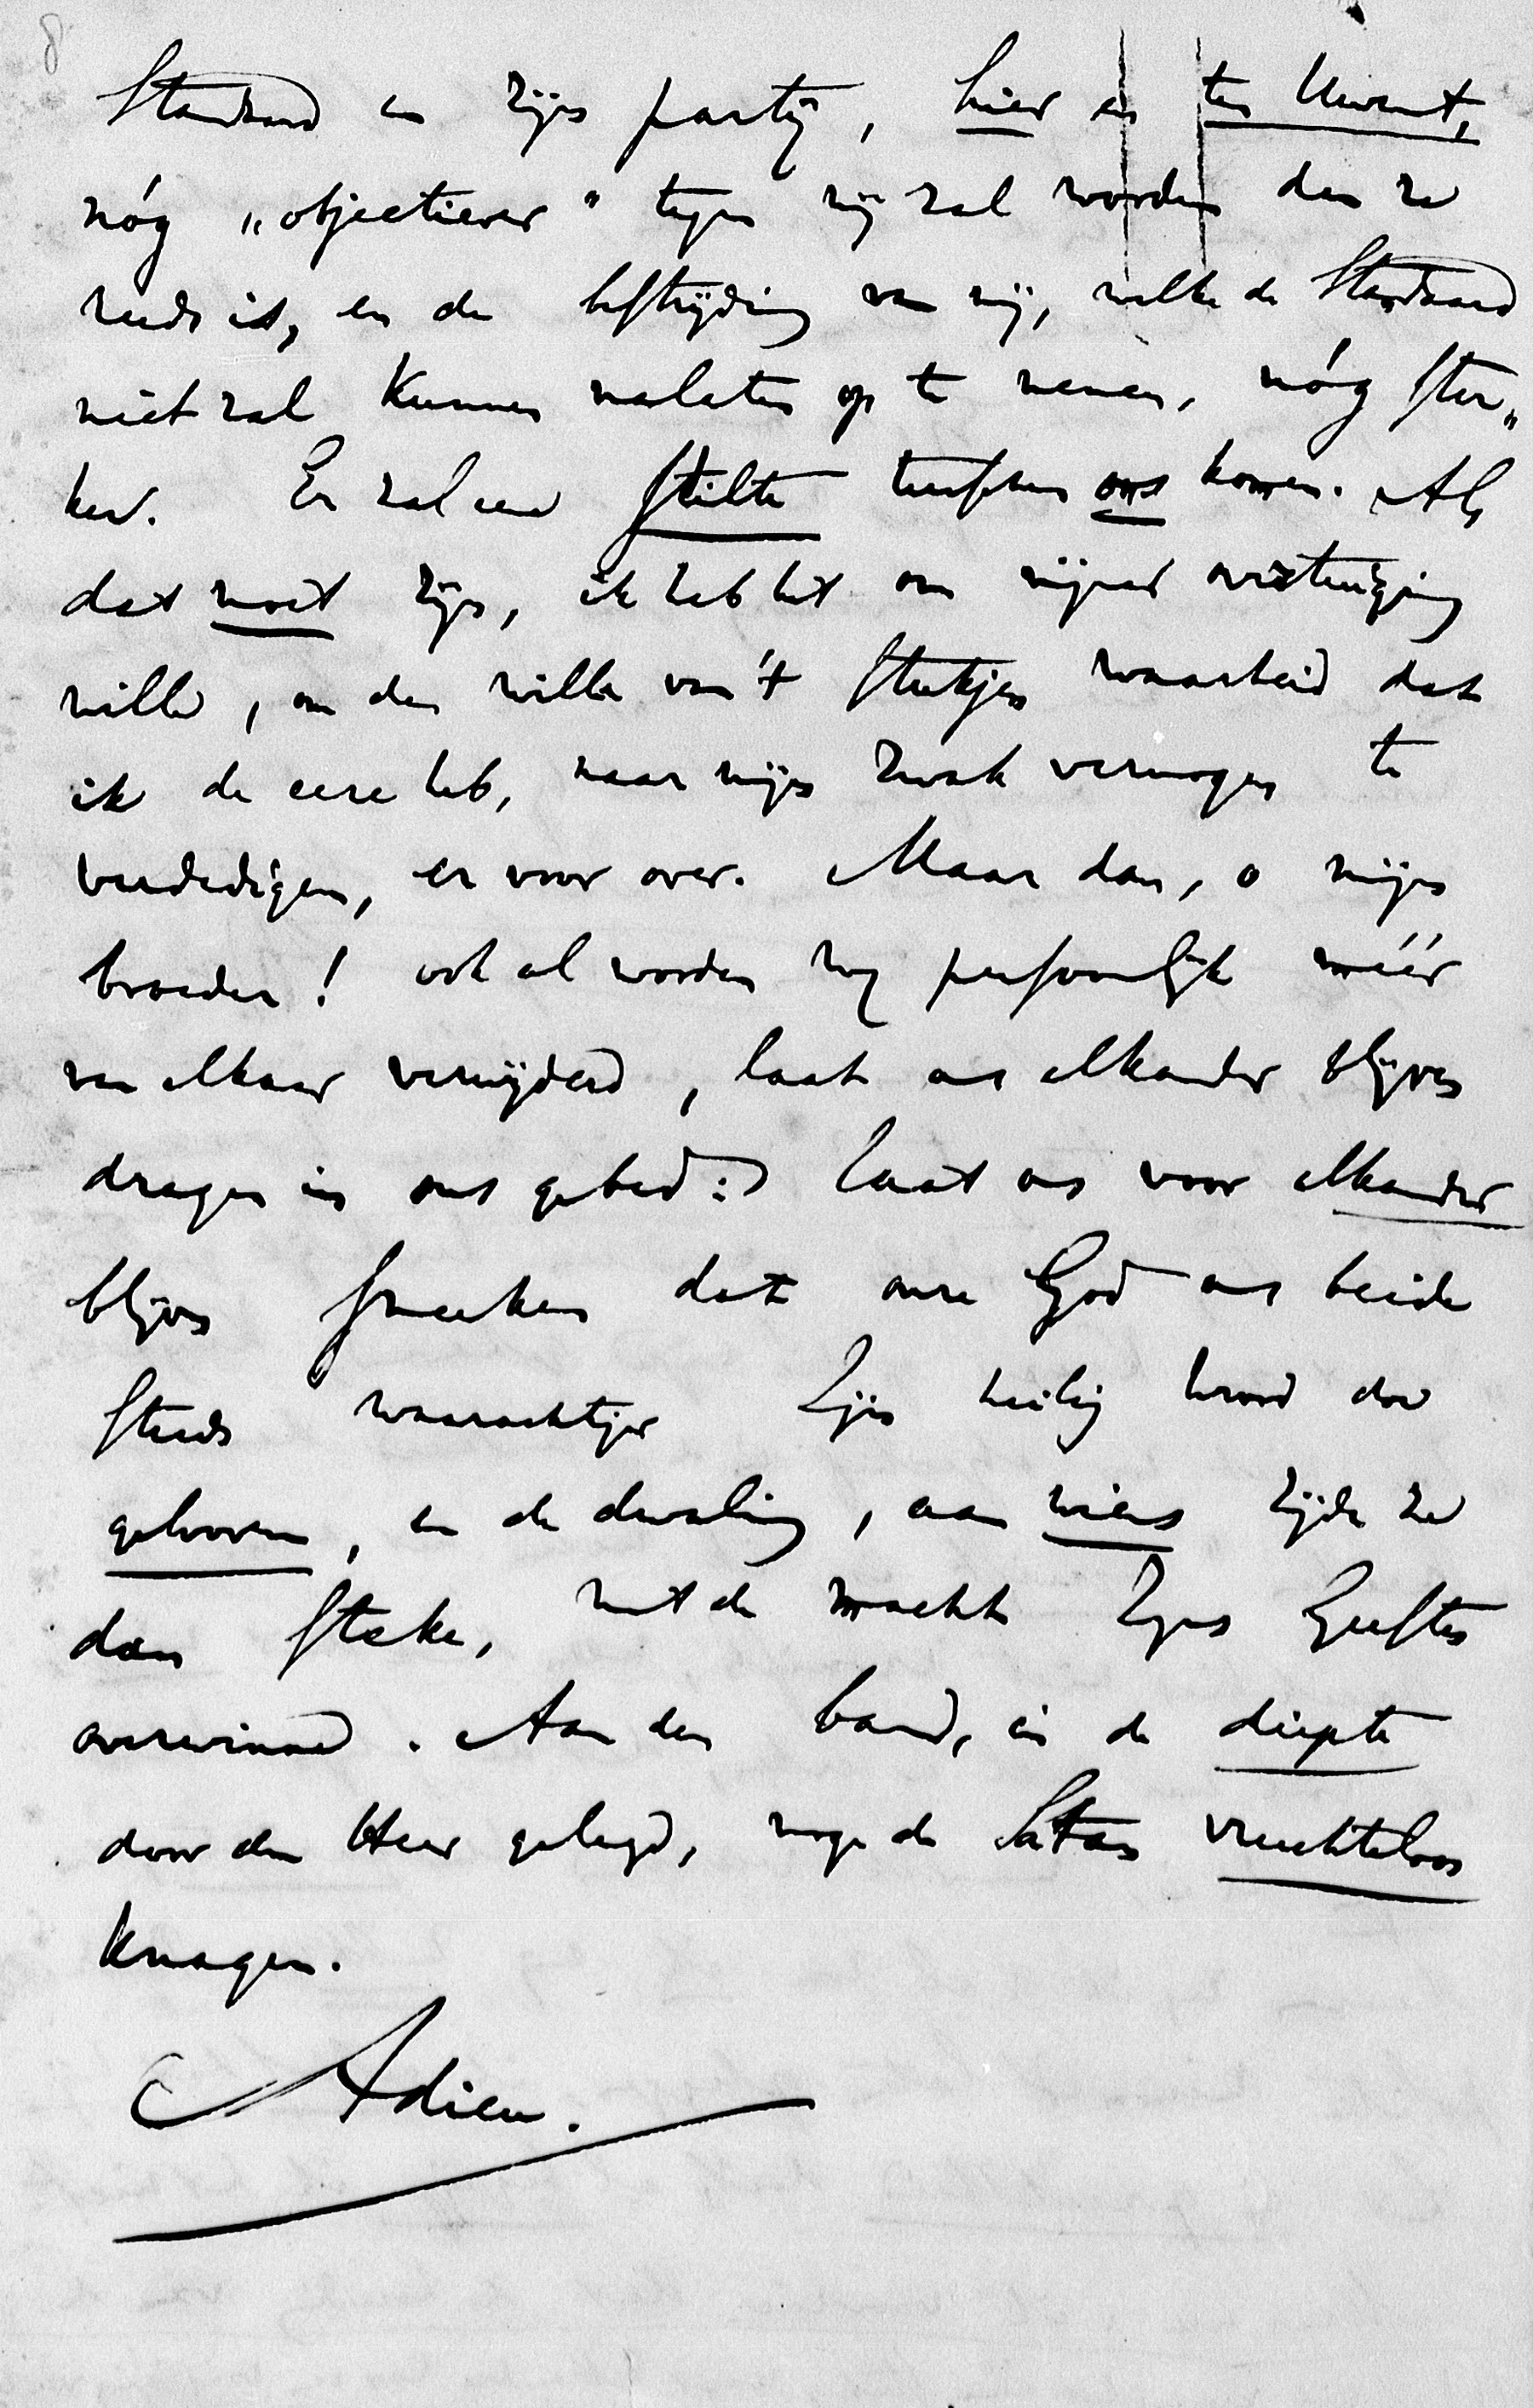 8
Standaard en zijn partij, hier en ten Uwent,
nóg „objectiever" tegen mij zal worden dan ze
reeds is, en de bestrijding van mij, welke de Standaard
niet zal kunnen nalaten op te nemen, nóg ster„
ker. Er zal een stilte tusschen ons komen. Als
dat moet zijn, ik heb het om mijner overtuiging
wille, om den wille van 't stukje waarheid dat
ik de eere heb, naar mijn zwak vermogen te
verdedigen, er voor over. Maar dan, o mijn
broeder! ook al worden wij persoonlijk méér
van elkaar verwijderd, laat ons elkander blijven
dragen in ons gebed: laat ons voor elkander
blijven smeeken dat onze God ons beide
steeds waarachtiger Zijn heilig woord doe
gelooven, en de dwaling, aan wiens zijde ze
dan steke, met de macht Zijns Geestes
overwinne. Aan den band, in de diepte
door den Heer gelegd, moge de Satan vruchteloos
knagen.
Adieu.